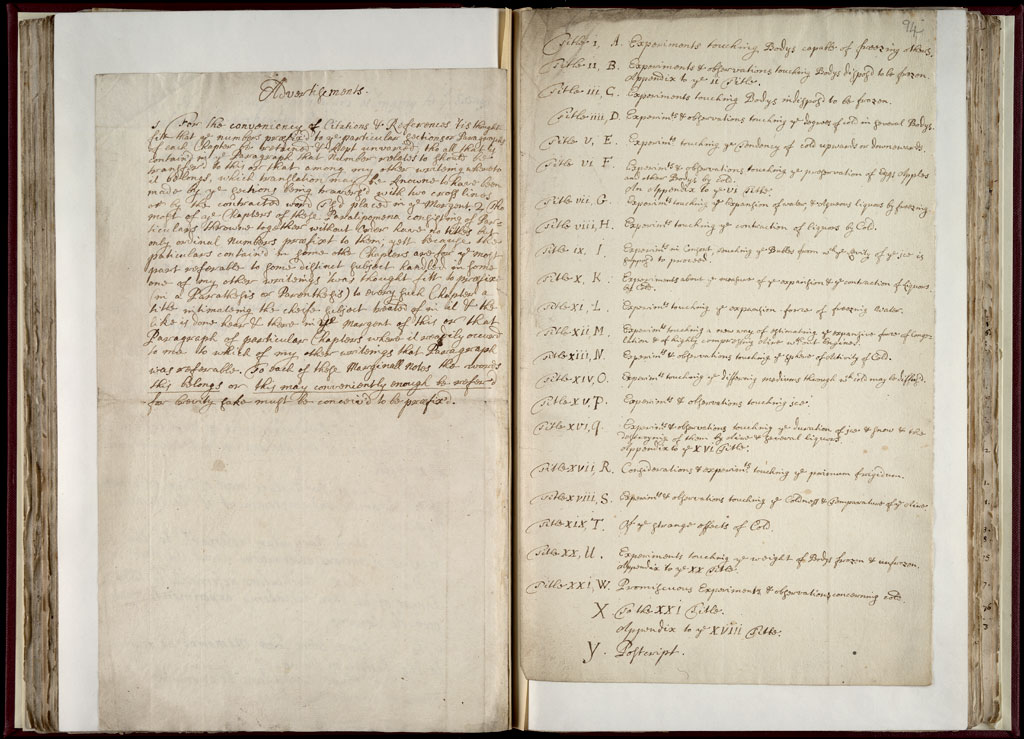 Advertisements.
1 For the conveniency of Citations & References 'tis thought
fitt that ye numbers præfixd to ye particular Sections or Paragraphs
of each Chapter be retained & kept unvaried, tho all that is
contain'd in ye Paragraph that Number relates to should be
transferrd to this or that among my other writeings wherto
it belongs, which translation may be knowne to have been
made by ye sections being travers'd with two cross lines
or by the contracted word placed in ye Margent. 2 Tho
most of ye Chapters of these Paralipomena consisting of Par-
ticulars throwne together without order have no titles but
only ordinal Numbers præfixt to them; yett because the
particulars contain'd in some othe Chapters are for ye most
part referable to some distinct subject handled in some
one of my other writeings twas thought fitt to præfix
(in a Parathesis or Parenthesis) to every such Chapter a
title intimateing the cheife subject treated of in it & the
like is done hear & there in ye Margent of this or that
Paragraph of particular Chapters where it readily occurrd
to me to which of my other writeings that Paragraph
was referable. To each of these Marginall Notes the words
this belongs or this may conveniently enough be referrd
for brevity sake must be conceiv'd to be præfix'd.
94
Title I, A. Experiments touching Bodys capable of freezing others.
Title II, B. Experiments & observations touching Bodys dispos'd to be frozen.
Appendix to ye II Title.
Title III, C. Experiments touching Bodys indispos'd to be frozen.
Title IIII D. Experimts & observations touching ye degrees of cold in severall Bodys.
Title V, E. Experimts touching ye tendency of cold upwards or downewards.
Title VI F. Experimts & observations touching ye preservation of Eggs Apples
and other Bodys by Cold.
An Appendix to ye VI Title.
Title VII, G. Experimts touching ye Expansion of water, & aqueous liquors by freezing.
Title VIII, H. Experimts touching ye contraction of liquors by Cold.
Title IX, I. Experimts in Consort, touching ye Bubles from wch ye levity of ye ice is
suppos'd to proceed.
Title X, K Experiments about ye measure of ye expansion & ye contraction of liquors
by Cold.
Title XI, L. Experimts touching ye expansive force of freezing Water.
Title XII M. Experimts touching a new way of estimateing ye expansive force of conge-
lation & of highly compressing Aire without engines.
Title XIII, N. Experimts & observations touching ye Sphere of Activity of Cold.
Title XIV, O. Experimts touching ye differing mediums through wch cold may be diffus'd.
Title XV, P. Experimts & observations touching ice.
Title XVI, Q. Experimts & observations touching ye duration of ice & snow & the
destroying of them by Aire & severall liquors
Appendix to ye XVI Title.
Title XVII, R. Considerations & experimts touching ye primum frigidum.
Title XVIII S. Experimts & observations touching ye Coldness & Temperature of ye Aire.
Title XIX, T. Of ye strange effects of Cold.
Title XX, U. Experiments touching ye weight of Bodys frozen & unfrozen.
Appendix to ye XX Title.
Title XXI, W. Promiscuous Experiments & observations concerning cold.
X To the XXI Title.
Appendix to ye XVIII Title.
Y. Postcript.